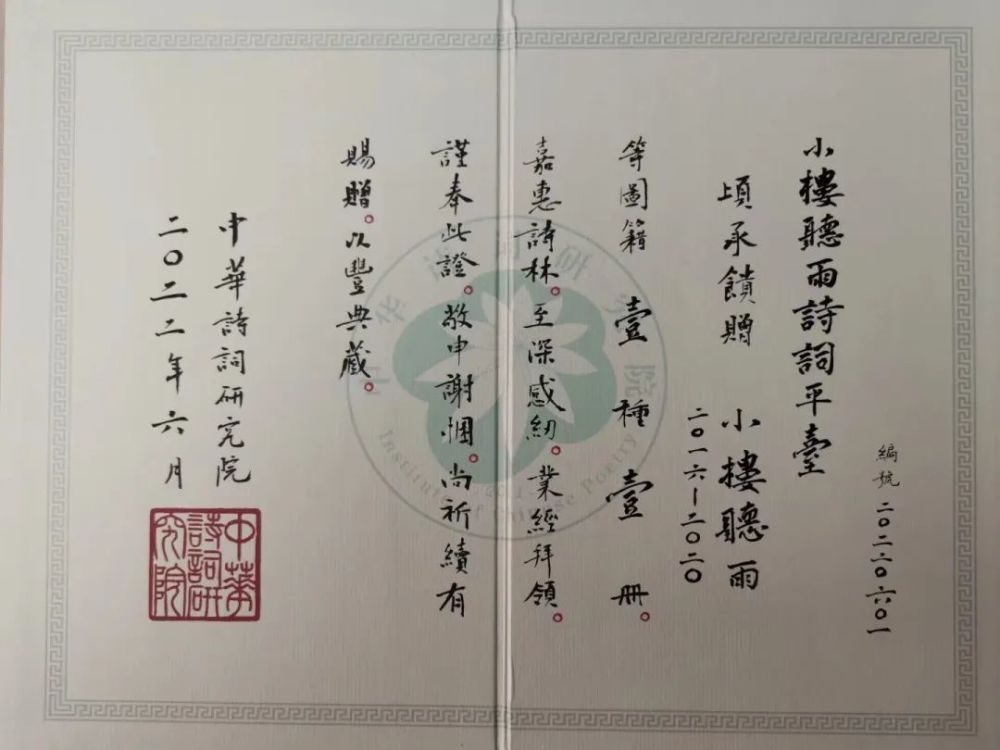 編號 二〇二二〇六〇一
小樓聽雨詩詞平臺
頃承饋贈 小樓聽雨
二〇一六—二〇二〇
等圖籍 壹種 壹冊。
嘉惠詩林。至深感紉。業經拜領。
謹奉此證。敬申謝悃。尚祈續有
賜贈。以豐典藏。
中華詩詞研究院
二〇二二年六月
中華詩詞研究院
中华诗词研究院
Institute of Chinese Poetry